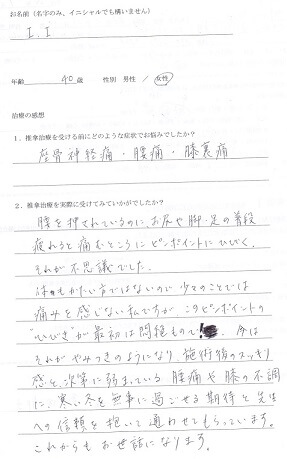 お名前（名字のみ、イニシャルでも構いません）
I. I
年齢 40 歳 性別 男性 / 女性
治療の感想
1．推拿治療を受ける前にどのような症状でお悩みでしたか？
座骨神経痛・腰痛・膝裏痛
2．推拿治療を実際に受けてみていかがでしたか？
腰を押されているのに、お尻や脚・足の普段
疲れると痛むところにピンポイントにひびく。
それが不思議でした。
体もかたい方ではないので少々のことでは
痛みを感じない私ですが、このピンポイントの
"ひびき"が最初は悶絶もので!、今は
それがやみつきのようになり、施術後のスッキリ
感と、次第に弱まっている腰痛や膝の不調
に、寒い冬を無事に過ごせる期待と先生
への信頼を抱いて通わせてもらっています。
これからもお世話になります。